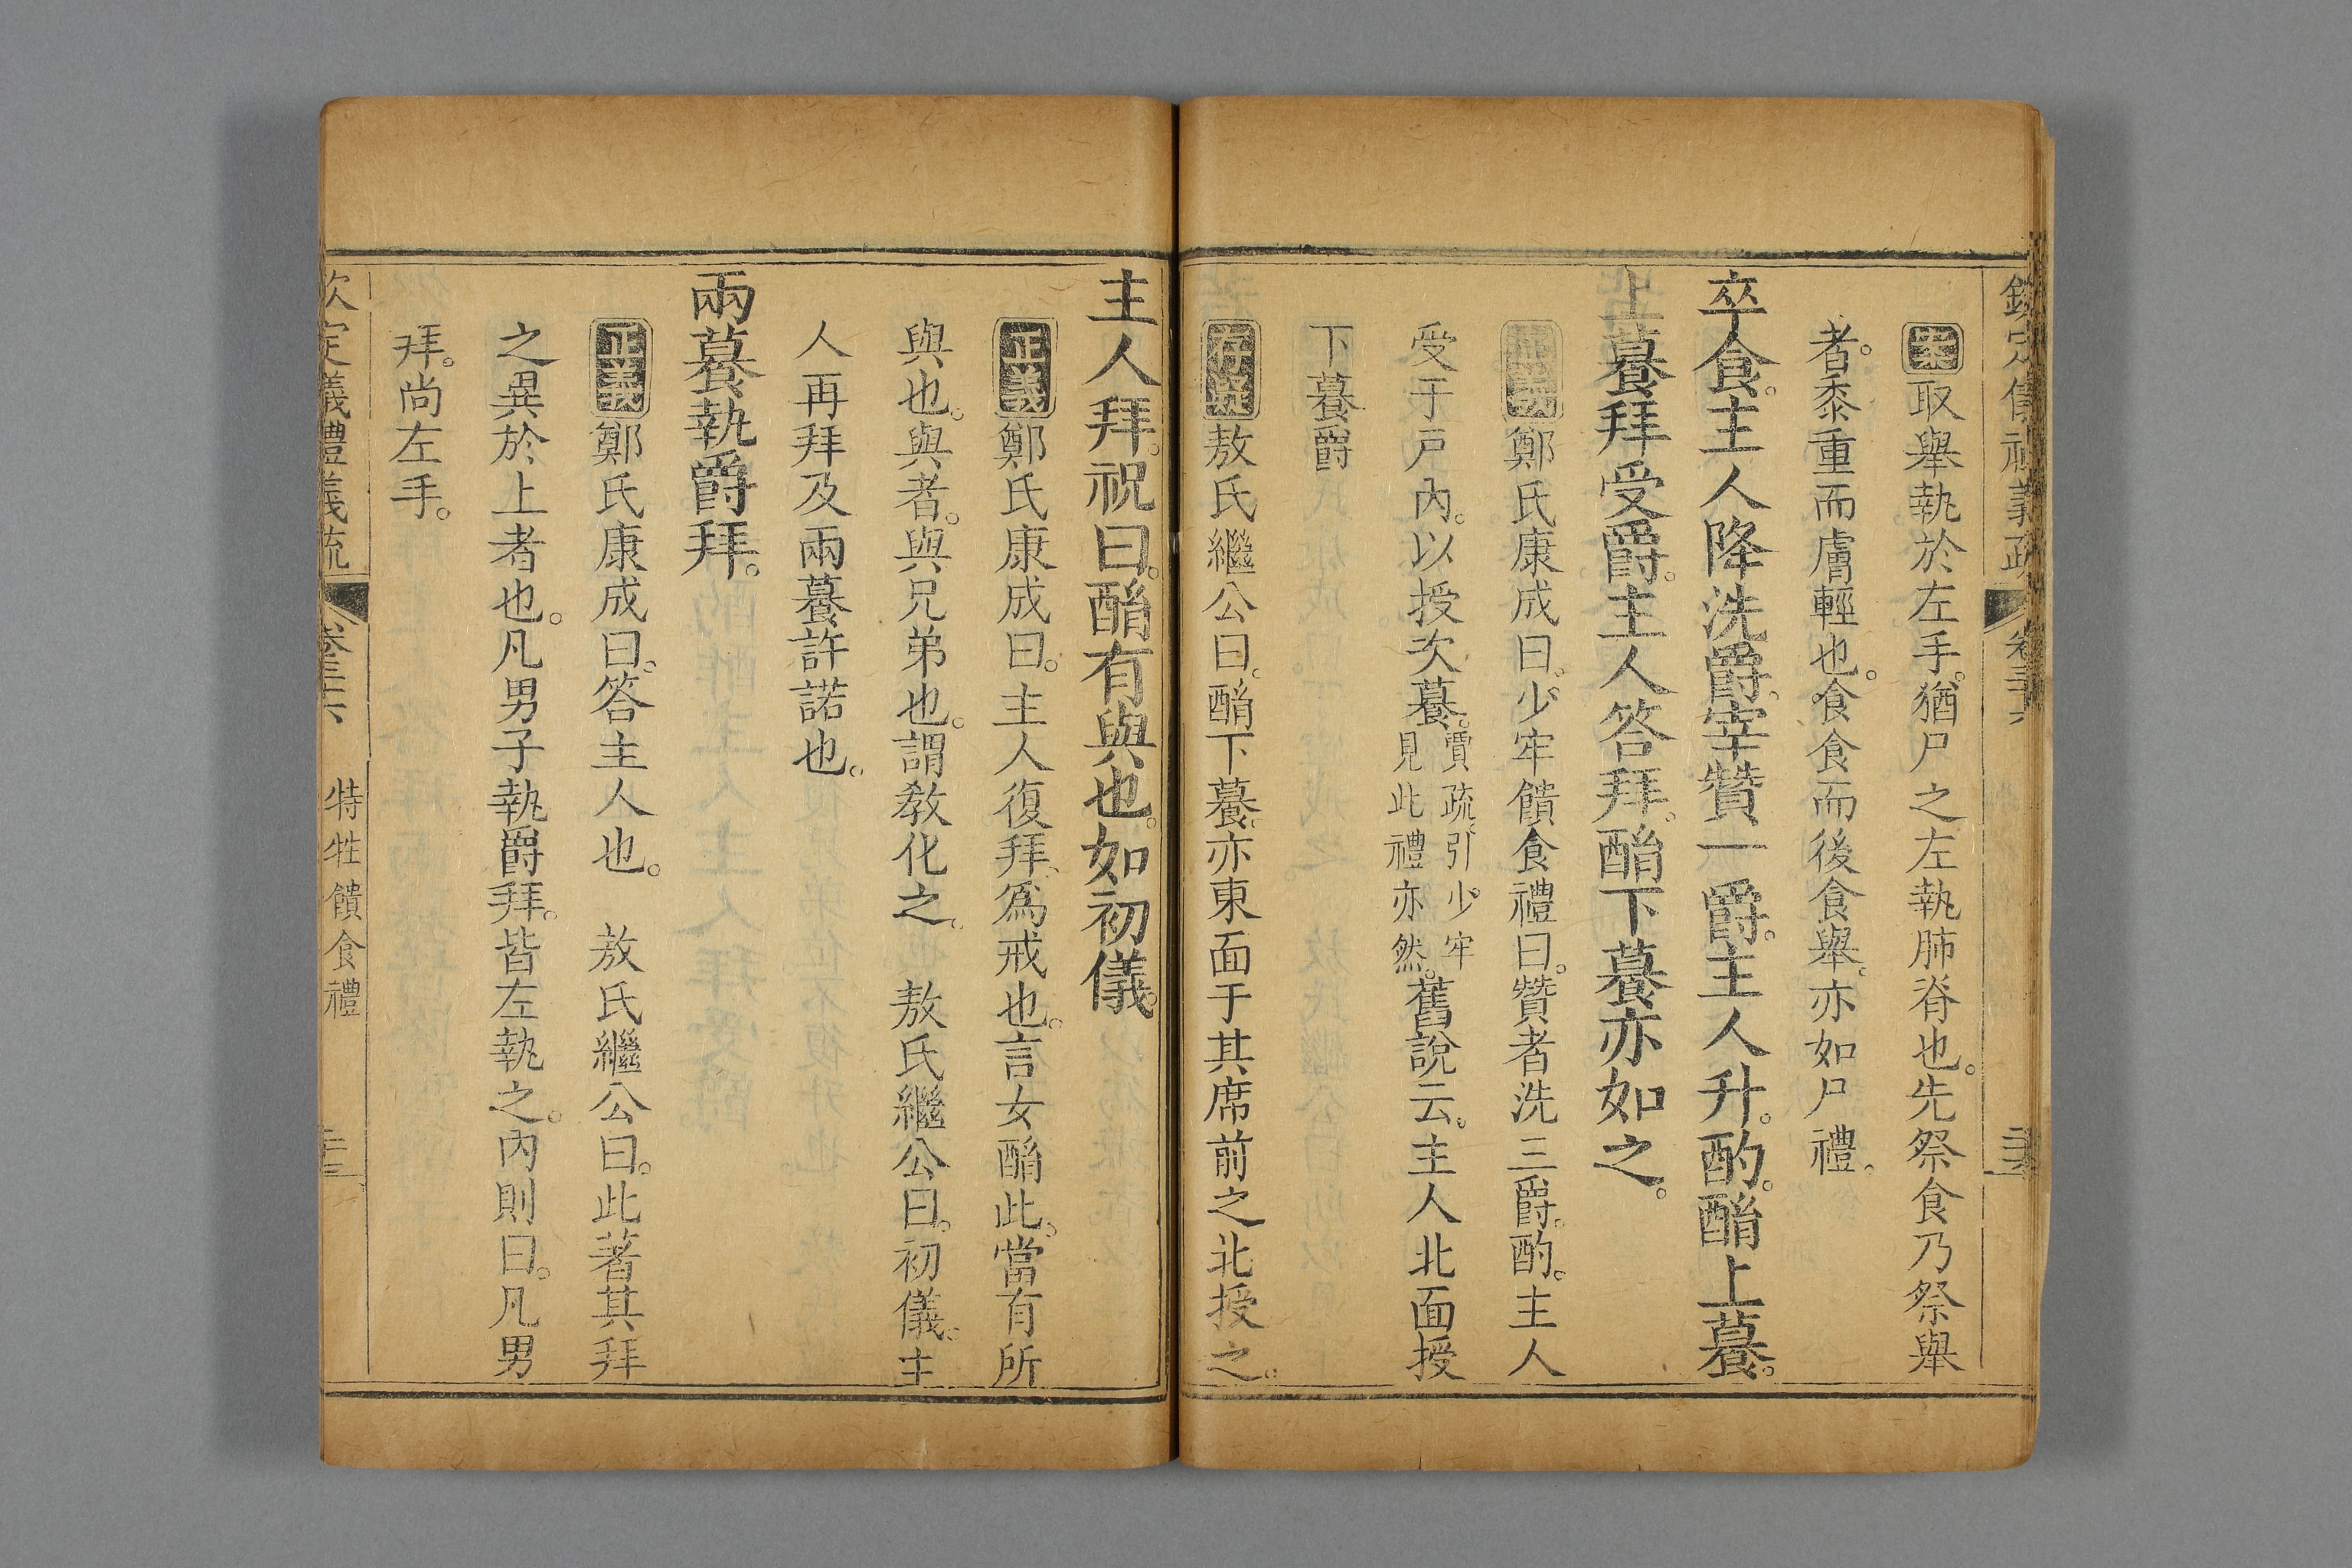 欽定儀禮義疏 卷三十六
案取舉執於左手。猶尸之左執肺脊也。先祭食乃祭舉
者。黍重而膚輕也。食食而後食舉。亦如尸禮。
卒食。主人降洗爵。宰贊一爵。主人升。酌。酳上䭆。
上䭆拜受爵。主人答拜。酳下䭆亦如之。
正義鄭氏康成曰。少牢饋食禮曰。贊者洗三爵。酌。主人
受于戶內。以授次䭆。賈疏。引少牢見此禮亦然。舊說云。主人北面授
下䭆爵
存疑敖氏繼公曰。酳下䭆。亦東面于其席前之北授之。
主人拜。祝曰。酳有與也。如初儀。
正義鄭氏康成曰。主人復拜。爲戒也。言女酳此。當有所
與也。與者。與兄弟也。謂教化之。 敖氏繼公曰。初儀。主
人再拜及兩䭆許諾也。
兩䭆執爵拜。
正義鄭氏康成曰。答主人也。 敖氏繼公曰。此著其拜
之異於上者也。凡男子執爵拜。皆左執之。內則曰。凡男
拜。尚左手。
欽定儀禮義疏 卷三十六 特牲饋食禮